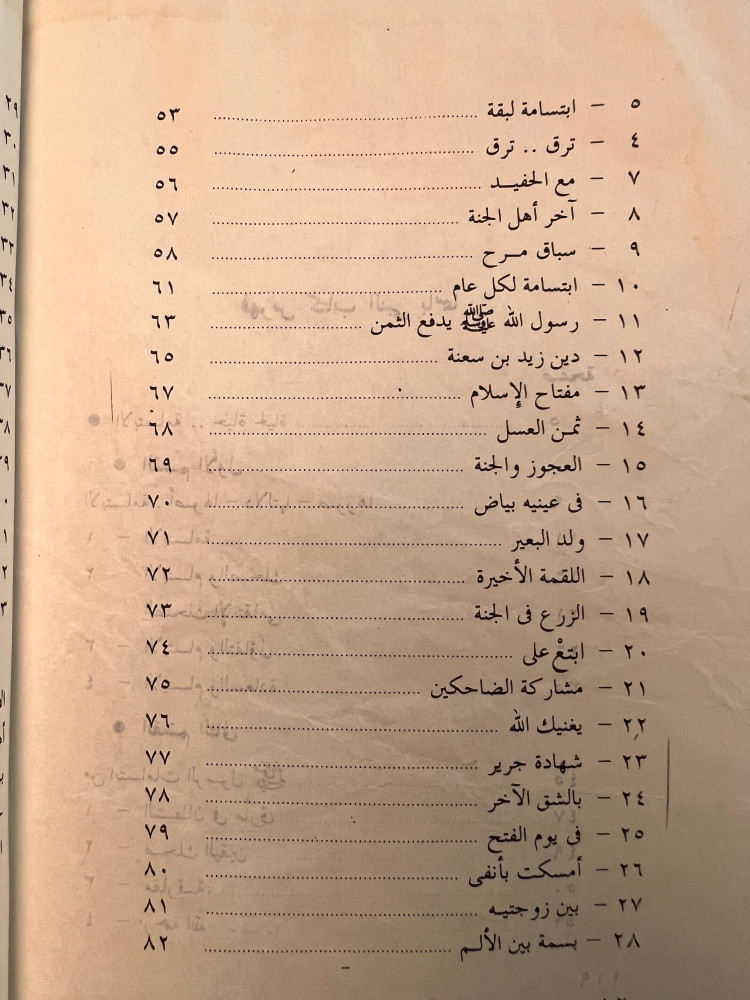 ٥ – ابتسامة لبقة ........ ٥٣
٤ – ترق .. ترق ........ ٥٥
٧ – مع الحفيـد ........ ٥٦
٨ – آخر أهل الجنة ........ ٥٧
٩ – سباق مـرح ........ ٥٨
١٠ – ابتسامة لكل عام ........ ٦١
١١ – رسول الله ﷺ يدفع الثمن ........ ٦٣
١٢ – دين زيد بن سعنة ........ ٦٥
١٣ – مفتاح الإسلام ........ ٦٧
١٤ – ثمن العسل ........ ٦٨
١٥ – العجوز والجنة ........ ٦٩
١٦ – فى عينيه بياض ........ ٧٠
١٧ – ولد البعير ........ ٧١
١٨ – اللقمة الأخيرة ........ ٧٢
١٩ – الزرع فى الجنة ........ ٧٣
٢٠ – ابتعْ على ........ ٧٤
٢١ – مشاركة الضاحكين ........ ٧٥
٢٢ – يغنيك الله ........ ٧٦
٢٣ – شهادة جرير ........ ٧٧
٢٤ – بالشق الآخر ........ ٧٨
٢٥ – فى يوم الفتح ........ ٧٩
٢٦ – أمسكت بأنفى ........ ٨٠
٢٧ – بين زوجتيـه ........ ٨١
٢٨ – بسمة بين الألـم ........ ٨٢
٢٩
٣٠
٣١
٣٢
٣٣
٣٤
٣٥
٣٦
٣٧
٣٨
٣٩